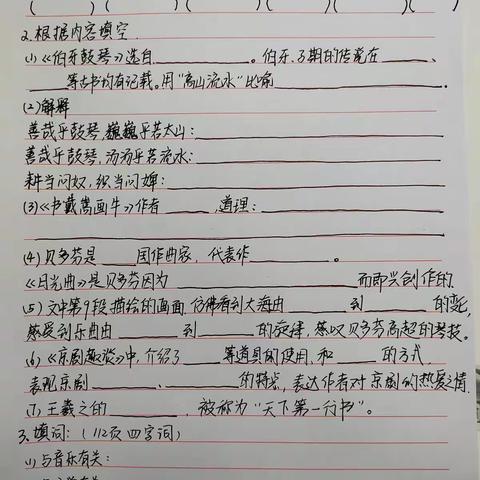 (　　) (　　) (　　) (　　) (　　) (　　)
2.根据内容填空.
(1)《伯牙鼓琴》选自__________。伯牙、子期的传说在______、
______等古书均有记载。用“高山流水”比喻__________。
(2)解释
善哉乎鼓琴,巍巍乎若太山:__________
善哉乎鼓琴,汤汤乎若流水:__________
耕当问奴,织当问婢:__________
(3)《书戴嵩画牛》作者______,道理:__________
__________。
(4)贝多芬是____国作曲家,代表作__________。
《月光曲》是贝多芬因为__________而即兴创作的.
(5)文中第9段描绘的画面.仿佛看到大海由______到______的变化,
感受到乐曲由______到______的旋律,感叹贝多芬高超的琴技。
(6)《京剧趣谈》中,介绍了____等道具的使用,和____的方式.
表现京剧______、______的特点,表达作者对京剧的热爱之情.
(7)王羲之的______,被称为“天下第一行书”。
3.填词:(112页四字词)
(1)与音乐有关: